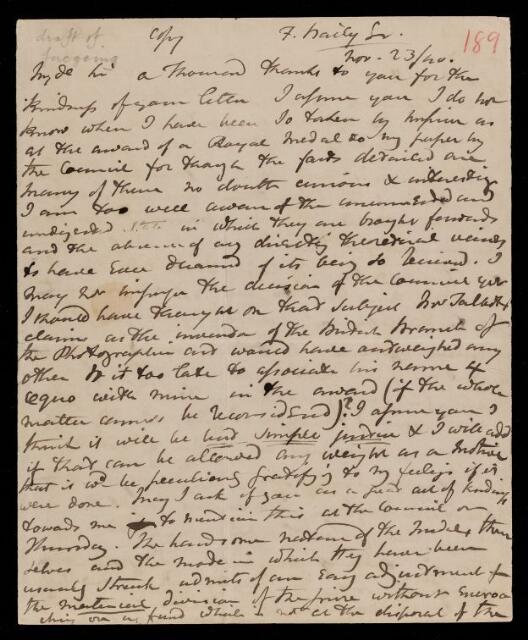 draft of
foregoing
Copy
F. Baily Esq.
189
Nov. 23/40.
My dr Sir a thousand thanks to you for the
kindness of your letter I assure you I do not
know when I have been so taken by surprise as
at the award of a Royal Medal to my paper by
the Council for though the facts detailed are
many of them no doubt curious & interesting
I am too well aware of the unconnected and
undigested state in which they are brought forwards
and the absence of any directly theoretical views
to have ever dreamed of its being so received. I
may not impugn the decision of the Council yet
I should have thought on that subject Mr Talbot's
claims as the inventor of the British Branch of
the Photographic art would have outweighed any
other Is it too late to associate his name ex
æquo with mine in the award (if the whole
matter cannot be reconsidered)? I assure you I
think it will be but simple justice & I will add
if that can be allowed any weight as a motive
that it wd be peculiarly gratifying to my feelings if it
were done. May I ask of you as a great act of kindness
towards me to mention this at the Council on
Thursday. The handsome nature of the Medals them
selves and the mode in which they have been
usually struck admits of an easy adjustment for
the material division of the prize without encroa
ching on a fund which is not at the disposal of the